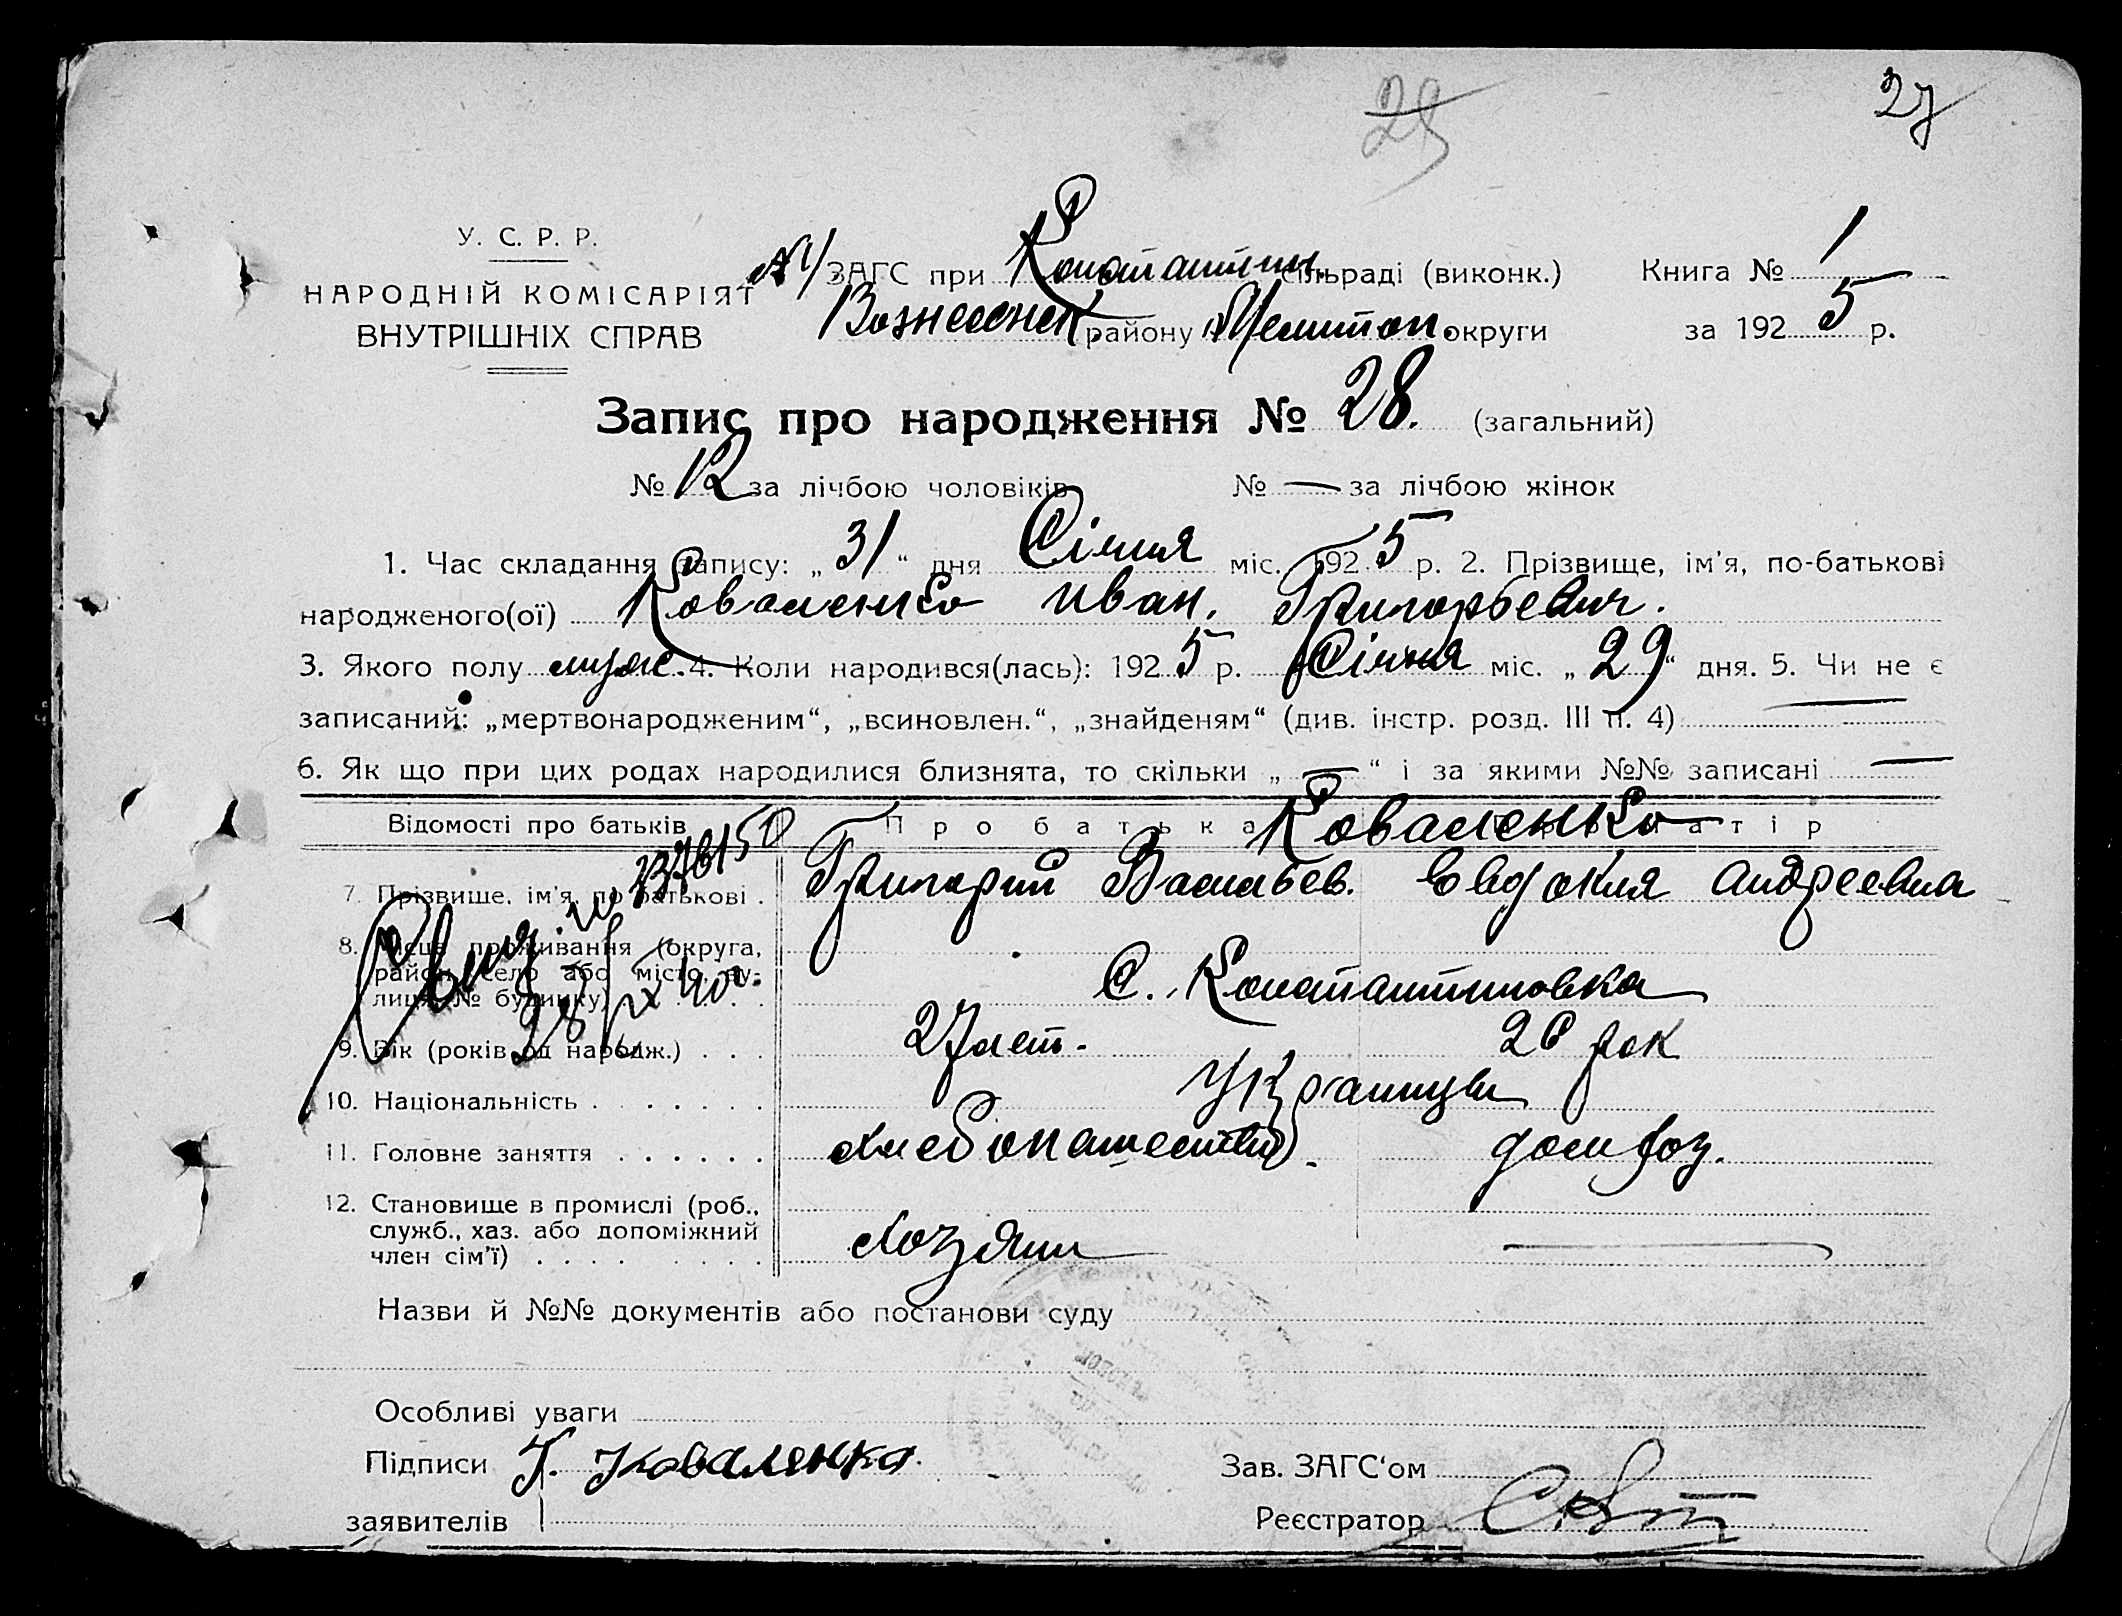 25
27
У. С. Р. Р.
НАРОДНІЙ КОМІСАРІЯТ
ВНУТРІШНІХ СПРАВ
ЗАГС при Константин. сільраді (виконк.) Книга № 1
Вознесенск району Мелитоп. округи за 1925 р.
Запис про народження № 28. (загальний)
№ 12 за лічбою чоловіків № — за лічбою жінок
1. Час складання запису: „31“ дня Січня міс. 1925 р. 2. Прізвище, ім'я, по-батькові
народженого(ої) Коваленко Иван. Григорьевич.
3. Якого полу муж. 4. Коли народився(лась): 1925 р. Січня міс. „29“ дня. 5. Чи не є
записаний: „мертвонародженим“, „всиновлен.“, „знайденям“ (див. інстр. розд. III п. 4) —
6. Як що при цих родах народилися близнята, то скільки „—“ і за якими №№ записані —
Відомості про батьків Про батька Про матір
Коваленко
7. Прізвище, ім'я, по батькові . Григорий Васильев. Евдокия Андреевна
8. Місце проживання (округа, район, село або місто, вулиця, № будинку) С. Константиновка
9. Вік (років од народж.) . . . 27 лет. 26 рок
10. Національність . . . . . . . Украинцы
11. Головне заняття . . . . . . хлебопашество. дом хоз.
12. Становище в промислі (роб.,
служб., хаз. або допоміжний
член сім'ї) . . . . . . . . Хозяин —
Назви й №№ документів або постанови суду
Особливі уваги
Підписи Г. Коваленка. Зав. ЗАГС'ом
заявителів Реєстратор